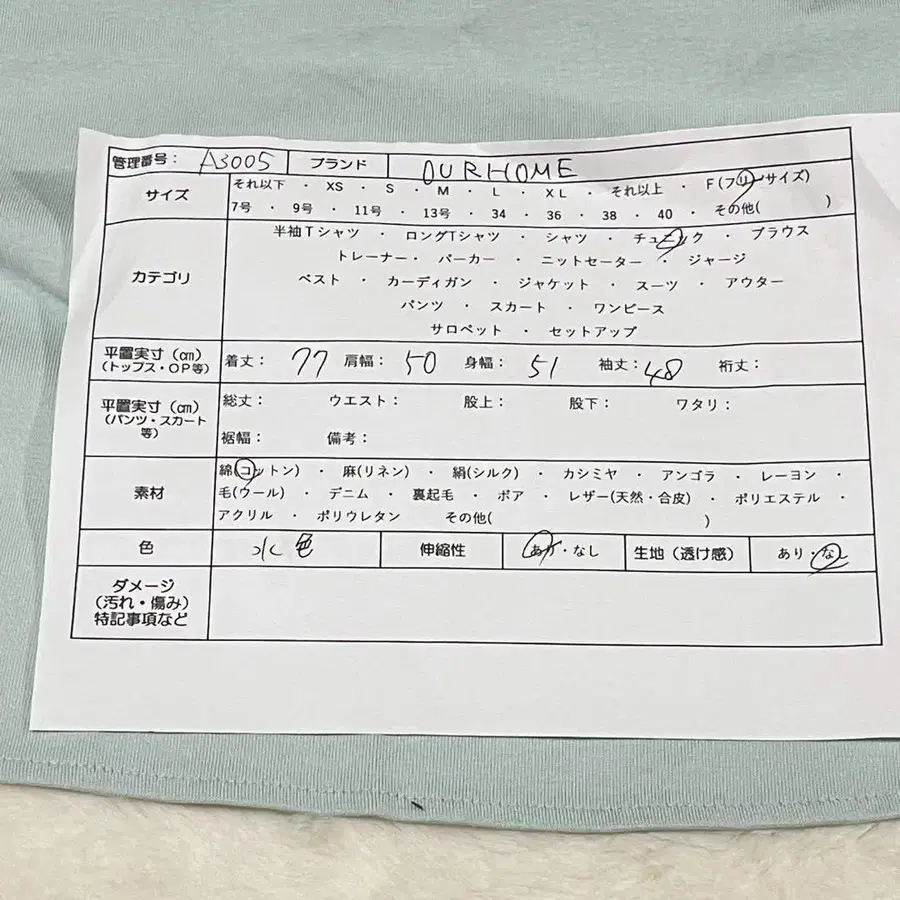 管理番号： A3005 ブランド OURHOME
サイズ それ以下 ・ XS ・ S ・ M ・ L ・ XL ・ それ以上 ・ F(フリーサイズ)
7号 ・ 9号 ・ 11号 ・ 13号 ・ 34 ・ 36 ・ 38 ・ 40 ・ その他( )
カテゴリ
半袖Tシャツ ・ ロングTシャツ ・ シャツ ・ チュニック ・ ブラウス
トレーナー ・ パーカー ・ ニットセーター ・ ジャージ
ベスト ・ カーディガン ・ ジャケット ・ スーツ ・ アウター
パンツ ・ スカート ・ ワンピース
サロペット ・ セットアップ
平置実寸（㎝）
(トップス・OP等)
着丈： 77 肩幅： 50 身幅： 51 袖丈： 48 裄丈：
平置実寸（㎝）
(パンツ・スカート
等)
総丈： ウエスト： 股上： 股下： ワタリ：
裾幅： 備考：
素材
綿(コットン) ・ 麻(リネン) ・ 絹(シルク) ・ カシミヤ ・ アンゴラ ・ レーヨン ・
毛(ウール) ・ デニム ・ 裏起毛 ・ ボア ・ レザー(天然・合皮) ・ ポリエステル ・
アクリル ・ ポリウレタン その他( )
色 水色 伸縮性 あり・なし 生地（透け感） あり・なし
ダメージ
（汚れ・傷み）
特記事項など